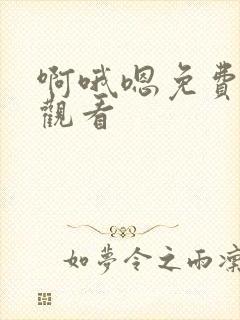 啊哦嗯免費
觀看
如夢令之雨凜